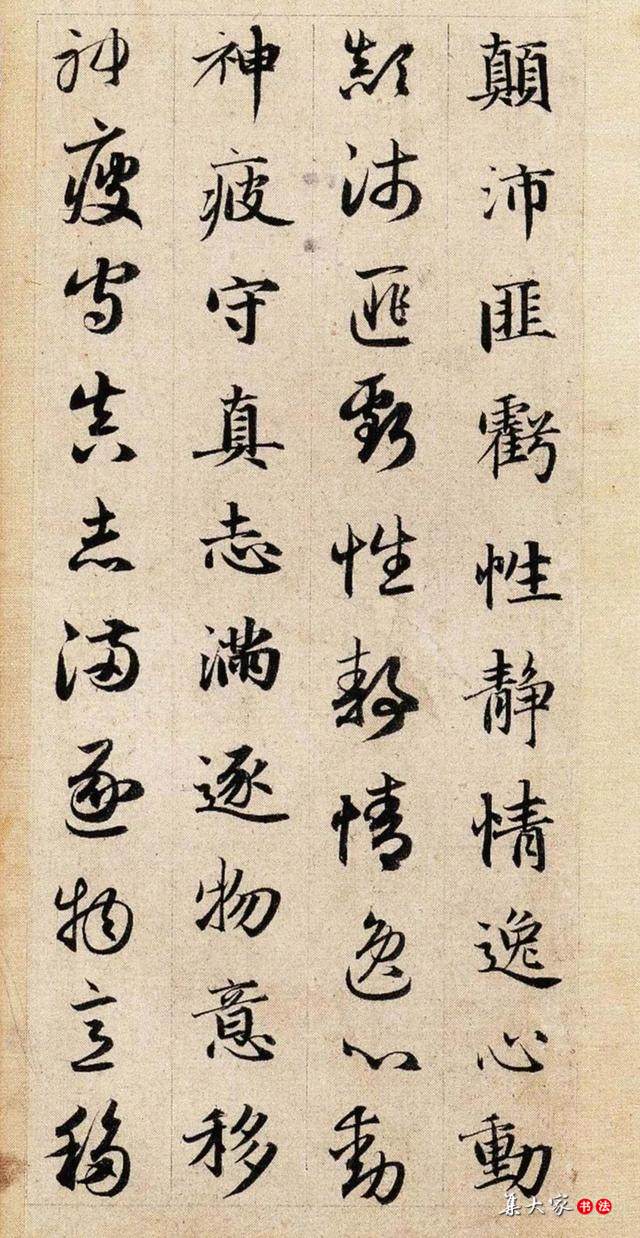 顛沛匪虧性靜情逸心動
顛沛匪虧性靜情逸心動
神疲守真志滿逐物意移
神疲守真志滿逐物意移
集大家书法